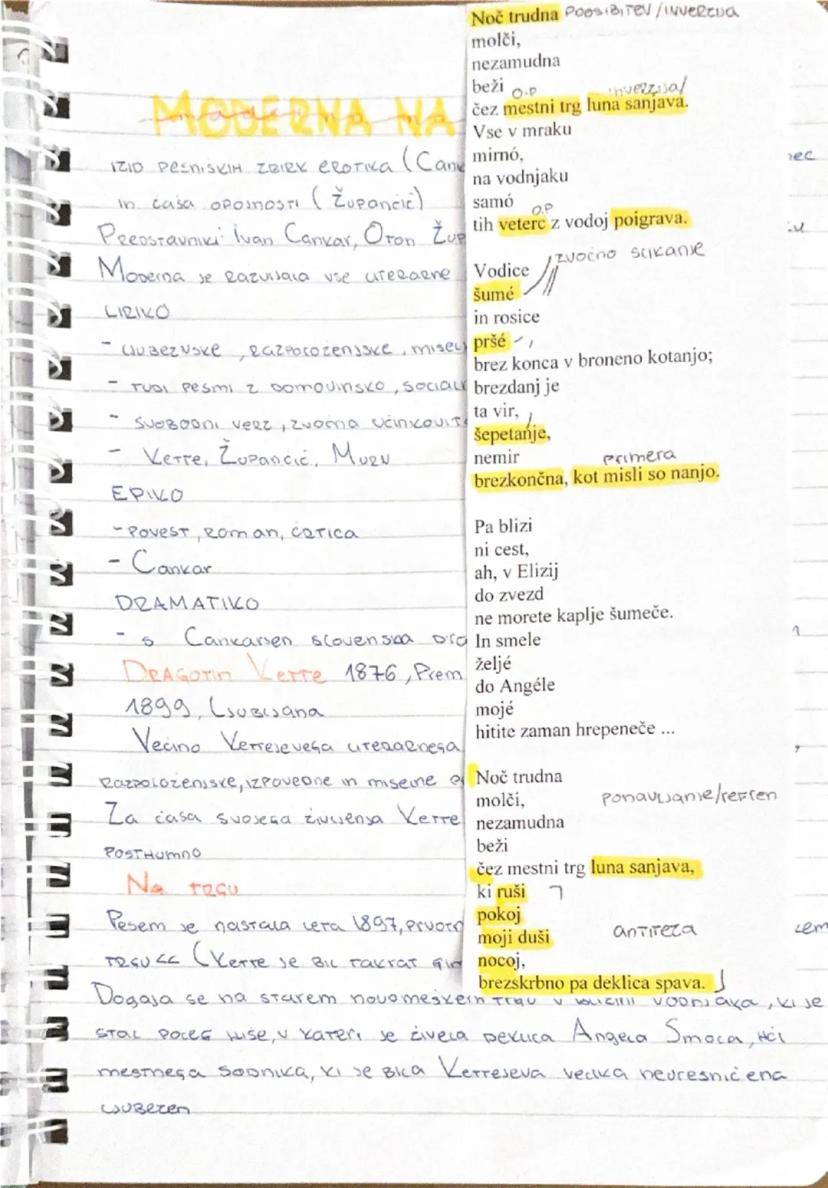 MODERNA NA
IZID PESNIŠKIH ZBIRK EROTIKA (Cank
IN ČAŠA OPOJNOSTI (Župančič)
PREDSTAVNIKI Ivan Cankar, Oton Žup
Moderna je razvijala vse literarne
LIRIKO
- LJUBEZNSKE, RAZPOLOŽENJSKE, MISEL
- TUDI PESMI Z DOMOVINSKO, SOCIAL
- SVOBODNI VERZ, ZVOČNA UČINKOVIT
- Kette, Župančič, Murn
EPIKO
- POVEST, ROMAN, ČRTICA
- Cankar
DRAMATIKO
- s Cankarjen slovenska
DRAGOTIN Kette 1876, Prem
1899, Ljubljana
Večino Kettejevega literarnega
RAZPOLOŽENJSKE, IZPOVEDNE IN MISELNE
Za časa svojega življenja Kette
POSTHUMNO
Na TRGU
Pesem je nastala leta 1897, prvotn
TRGU << (Kette je bil takrat
Dogaja se na starem novomeškem trgu v bližini vodnjaka, ki je
stal poleg hiše, v kateri je živela deklica Angela Smola, hči
mestnega sodnika, ki je bila Kettejeva velika neuresničena
ljubezen
Noč trudna POOSIBITEV/INVERZIJA
molči,
nezamudna
beži O.P inverzija/
čez mestni trg luna sanjava.
Vse v mraku
mirnó,
na vodnjaku
samó
O.P
tih veterc z vodoj poigrava.
zvočno slikanje
Vodice
šumé
in rosice
pršé
brez konca v broneno kotanjo;
brezdanj je
ta vir,
šepetanje,
nemir primera
brezkončna, kot misli so nanjo.
Pa blizi
ni cest,
ah, v Elizij
do zvezd
ne morete kaplje šumeče.
In smele
željé
do Angéle
mojé
hitite zaman hrepeneče ...
Noč trudna
molči, ponavljanje/refren
nezamudna
beži
čez mestni trg luna sanjava,
ki ruši
pokoj
moji duši antiteza
nocoj,
brezskrbno pa deklica spava.